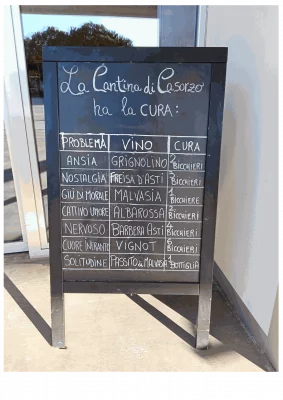 La Cantina di Casorzo
ha la CURA:
PROBLEMA VINO CURA
ANSIA GRIGNOLINO 2 BICCHIERI
NOSTALGIA FREISA D'ASTI 3 BICCHIERI
GIÙ DI MORALE MALVASIA 1 BICCHIERE
CATTIVO UMORE ALBAROSSA 2 BICCHIERI
NERVOSO BARBERA ASTI 4 BICCHIERI
CUORE INFRANTO VIGNOT 6 BICCHIERI
SOLITUDINE PASSITO di MALVASIA 1 BOTTIGLIA